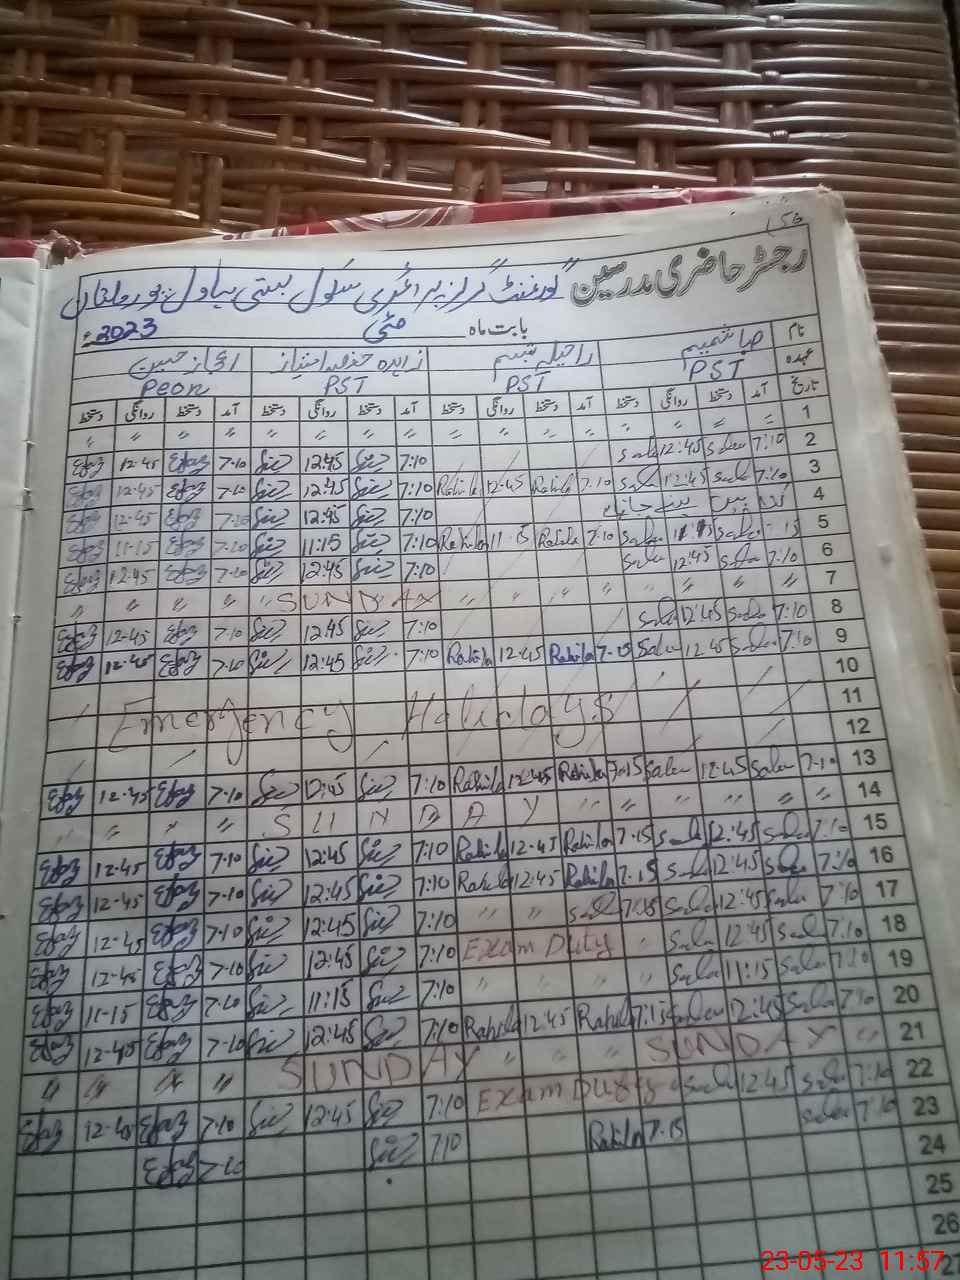 رجسٹر حاضری مدرسین گورنمنٹ گرلز پرائمری سکول بستی بہاول پور ملتان
بابت ماہ مئی 2023
نام صبا شمیم راحیلہ تبسم زاہدہ اعجاز حسین
عہدہ PST PST PST Peon
تاریخ آمد دستخط روانگی دستخط آمد دستخط روانگی دستخط آمد دستخط روانگی دستخط آمد دستخط روانگی دستخط
1 〃 〃 〃 〃 〃 〃 〃 〃 〃 〃 〃 〃 〃 〃 〃 〃
2 7:10 Saba 12:45 Saba 7:10 12:45 7:10 Ejaz 12-45 Ejaz
3 7:10 Saba 12:45 Saba 7:10 Rahila 12:45 Rahila 7:10 12:45 7-10 Ejaz 12-45 Ejaz
4 7:10 12:45 7-10 Ejaz 12-45 Ejaz
5 7:15 Saba 11:15 Saba 7:10 Rahila 11:15 Rahila 7:10 11:15 7-10 Ejaz 11-15 Ejaz
6 7:10 Saba 12:45 Saba 7:10 12:45 7-10 Ejaz 12-45 Ejaz
7 〃 〃 〃 〃 〃 〃 SUNDAY 〃 〃 〃 〃 〃
8 7:10 Saba 12:45 Saba 7:10 12:45 7-10 Ejaz 12-45 Ejaz
9 7:10 Saba 12:45 Saba 7-15 Rahila 12:45 Rahila 7:10 12:45 7-10 Ejaz 12-45 Ejaz
10
11 Emergency Holidays
12
13 7-10 Saba 12:45 Saba 7-15 Rahila 12:45 Rahila 7:10 12:45 7-10 Ejaz 12-45 Ejaz
14 〃 〃 〃 〃 〃 〃 SUNDAY 〃 〃 〃 〃
15 7:10 Saba 12:45 Saba 7-15 Rahila 12-45 Rahila 7:10 12:45 7-10 Ejaz 12-45 Ejaz
16 7:10 Saba 12:45 Saba 7-15 Rahila 12:45 Rahila 7:10 12:45 7-10 Ejaz 12-45 Ejaz
17 7:10 Saba 12:45 Saba 7:15 〃 〃 7:10 12:45 7-10 Ejaz 12-45 Ejaz
18 7:10 Saba 12:45 Saba 〃 Exam Duty 7:10 12:45 7-10 Ejaz 12-45 Ejaz
19 7:10 Saba 11:15 Saba 〃 〃 〃 〃 7:10 11:15 7-10 Ejaz 11-15 Ejaz
20 7:10 Saba 12:45 Saba 7:15 Rahila 12:45 Rahila 7:10 12:45 7-10 Ejaz 12-45 Ejaz
21 〃 SUNDAY 〃 〃 〃 SUNDAY 〃 〃 〃 〃
22 7:10 Saba 12:45 Saba Exam Duty 7:10 12:45 7-10 Ejaz 12-45 Ejaz
23 7:10 Saba 7-15 Rahila 7:10 7-10 Ejaz
24
25
26
27
23-05-23 11:57